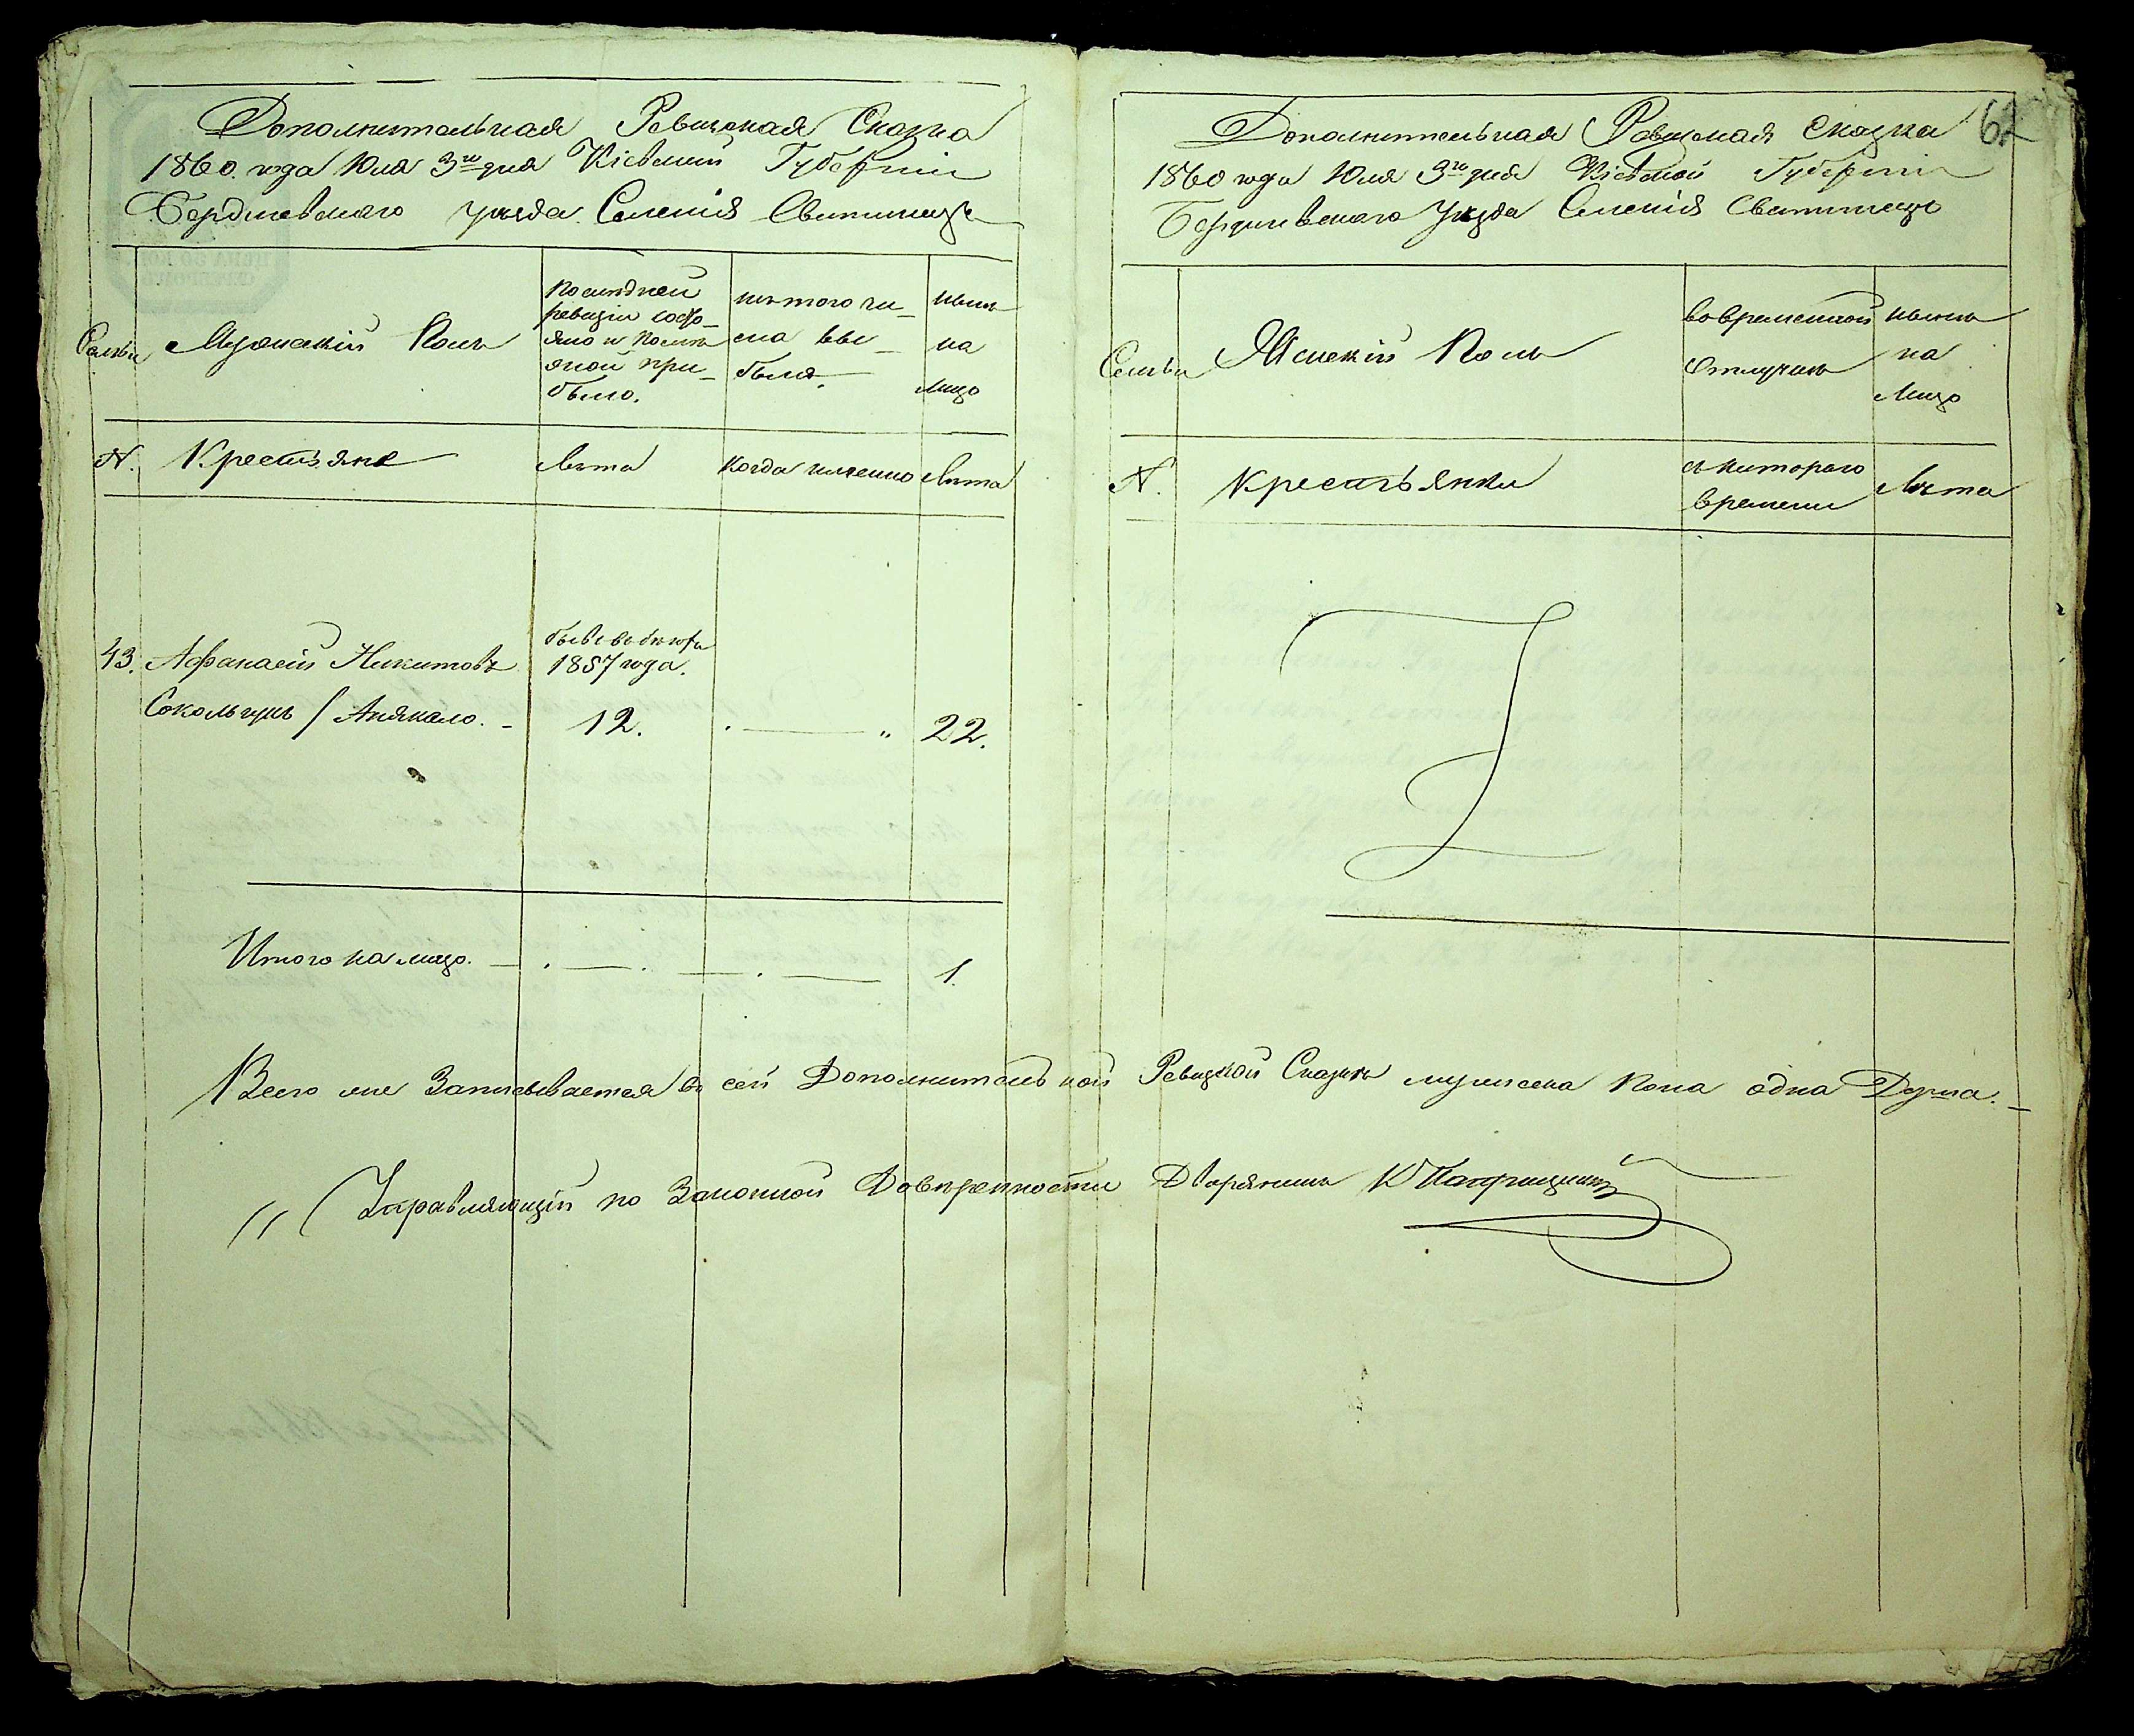 Дополнительная Ревизская Сказка
1860. года Юля 3го дня Кіевской Губерніи
Бердичевского уезда Селенія Свитинецъ
Семьи
Мужескій Полъ
Последней
ревизіи состо-
яло и после
оной при-
было.
изъ того чи-
сла вы-
было.
ныне
на
лицо
N.
Крестьяне
лета
когда именно
лета
43.
Афанасій Никитовъ
Сокольчукъ / Андякало. -
1857 года.
12.
22.
Итого на лицо.
1.
62
Дополнительная Ревизская Сказка
1860 года Юля 3го дня Кіевской Губерніи
Бердичевского Уезда Селенія Свитинецъ
Семьи
Женскій Полъ
во временной
отлучке
ныне
на
лицо
N.
Крестьянки
съ котораго
времени
лета
Всего же Записывается въ сей Дополнительной Ревизкой Сказки мужеска пола одна Душа. -
Управляющій по Законной Доверенности Дворянинъ К